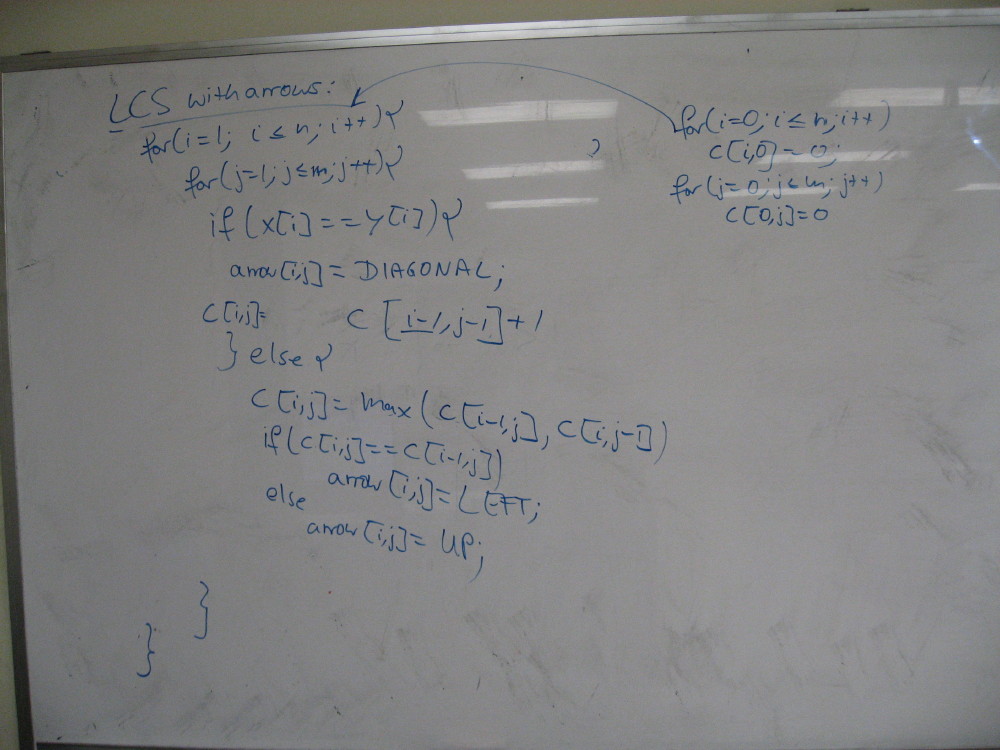 LCS with arrows:
for(i=1; i≤n; i++){
for(j=1; j≤m; j++){
if (x[i]==y[i]){
arrow[i,j]= DIAGONAL;
C[i,j]= C [i-1,j-1]+1
} else {
C[i,j]= max(C[i-1,j], C[i,j-1])
if(C[i,j]==C[i-1,j])
arrow[i,j]= LEFT;
else
arrow[i,j]= UP;
}
}
for(i=0; i≤n; i++)
C[i,0]=0;
for(j=0; j≤m; j++)
C[0,j]=0